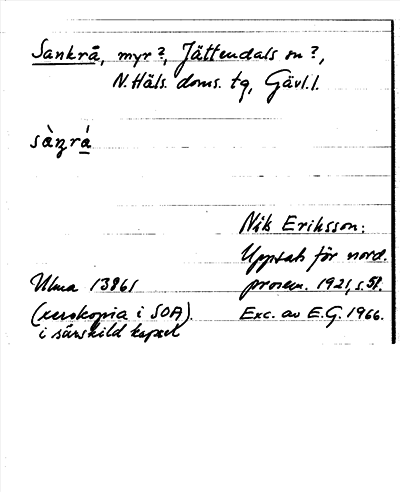 Sankrå, myr?, Jättendals sn?,
N. Häls. doms. tg, Gävl. l.
sàŋrá
Nils Eriksson:
Uppsats för nord.
Ulma 13861 prosem. 1921, s. 58.
(xerokopia i SOA). Exc. av E.G. 1966.
i särskild kapsel